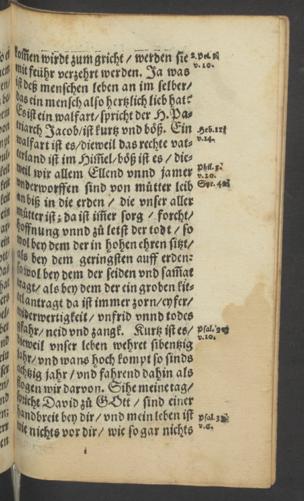 kom̃en wirdt zum gricht / werden sie
mit feühr verzehrt werden. Ja was
ist deß menschen leben an im selber/
das ein mensch also hertzlich lieb hat?
Es ist ein walfart / spricht der H. Pa-
triarch Jacob / ist kurtz vnd böß. Ein
walfart ist es / dieweil das rechte vat-
terland ist im Him̃el / böß ist es / die-
weil wir allem Ellend vnnd jamer
vnderworffen sind von mütter leib
an biß in die erden / die vnser aller
mütter ist: da ist im̃er sorg / forcht/
hoffnung vnnd zů letst der todt / so
wol bey dem der in hohen ehren sitzt/
als bey dem geringsten auff erden:
so wol bey dem der seiden vnd sam̃at
tragt / als bey dem der ein groben kit-
tel antragt da ist immer zorn / eyfer/
widerwertigkeit / vnfrid vnnd todes
gfahr / neid vnd zangk. Kurtz ist es/
dieweil vnser leben wehret sibentzig
jahr / vnd wans hoch kompt so sinds
achtzig jahr / vnd fahrend dahin als
flogen wir darvon. Sihe meine tag/
spricht David zů GOtt / sind einer
handbreit bey dir / vnd mein leben ist
wie nichts vor dir / wie so gar nichts
i
2. Pet. 3
v. 10.
Heb. 11
v. 14.
Phil. 3
v. 20.
Syr. 40
Psal. 90
v. 10.
Psal. 39
v. 6.